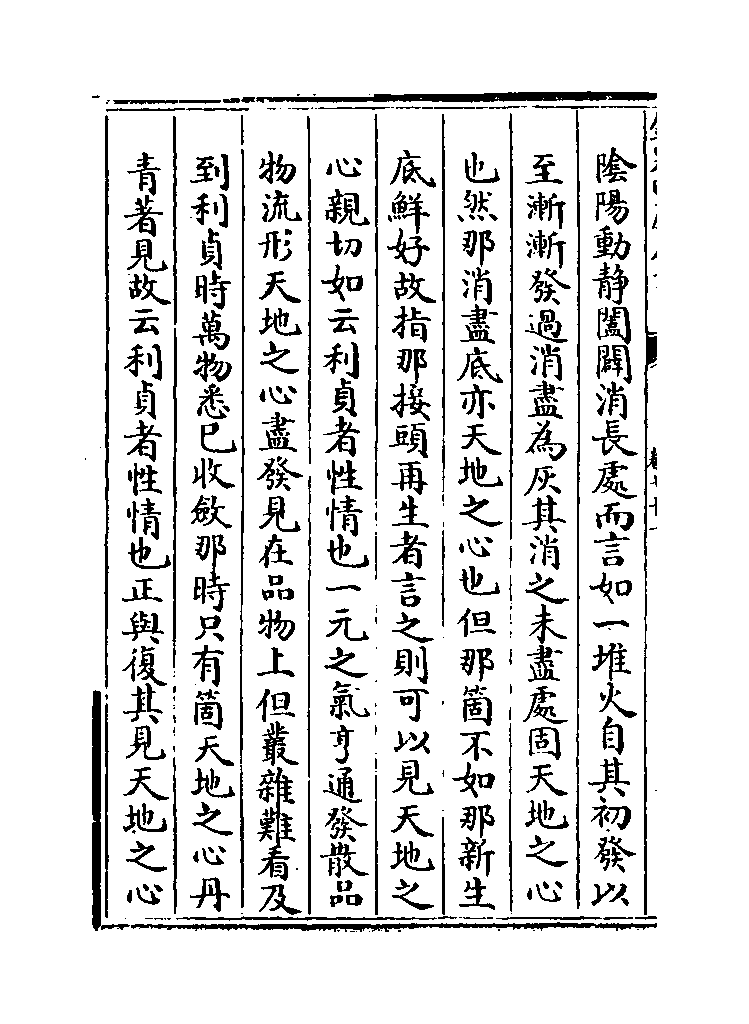 陰陽動静闔闢消長處而言如一堆火自其初發以
至漸漸發過消盡為灰其消之未盡處固天地之心
也然那消盡底亦天地之心也但那箇不如那新生
底鮮好故指那接頭再生者言之則可以見天地之
心親切如云利貞者性情也一元之氣亨通發散品
物流形天地之心盡發見在品物上但叢雜難看及
到利貞時萬物悉已收斂那時只有箇天地之心丹
青著見故云利貞者性情也正與復其見天地之心